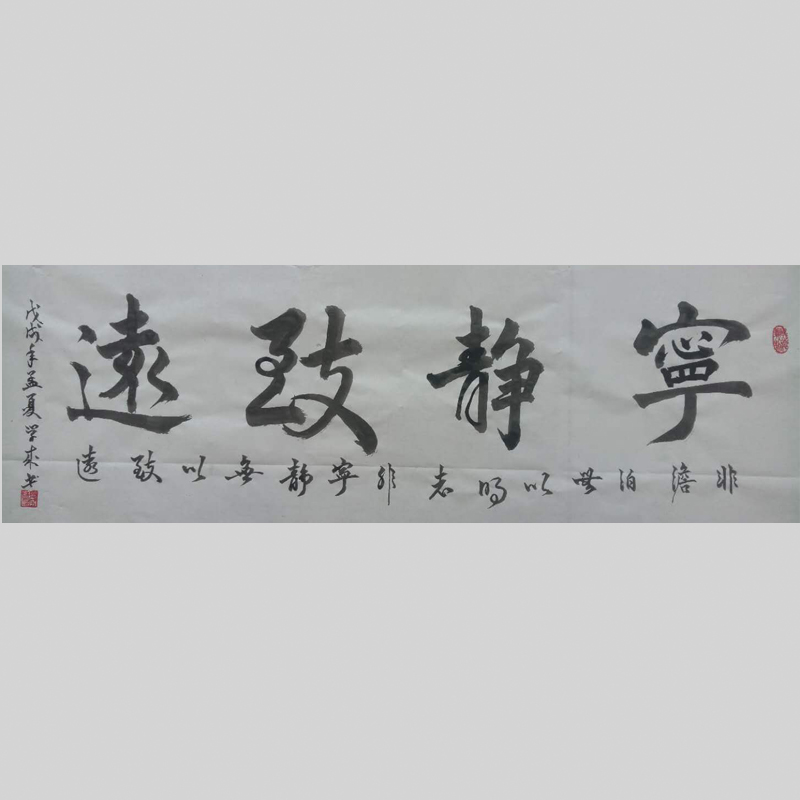 寧靜致遠
非澹泊無以明志非寧靜無以致遠
戊戌年孟夏学来书